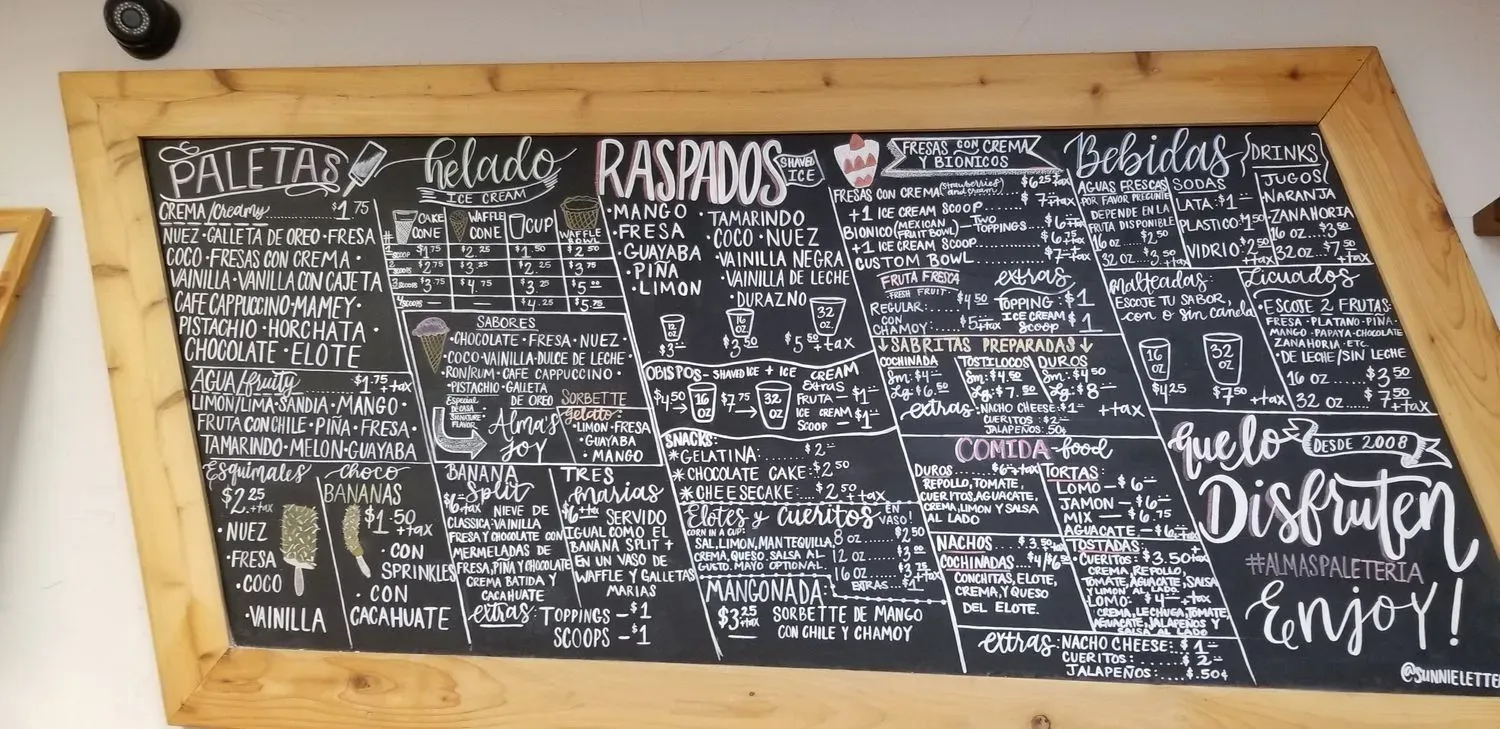 PALETAS
CREMA/creamy $1.75
NUEZ·GALLETA DE OREO·FRESA
COCO·FRESAS CON CREMA·
VAINILLA·VANILLA CON CAJETA
CAFE CAPPUCCINO·MAMEY·
PISTACHIO·HORCHATA·
CHOCOLATE·ELOTE
AGUA/fruity $1.75 +tax
LIMON/LIMA·SANDIA·MANGO·
FRUTA CON CHILE·PIÑA·FRESA·
TAMARINDO·MELON·GUAYABA
Esquimales
$2.25 +tax
·NUEZ
·FRESA
·COCO
·VAINILLA
choco
BANANAS
$1.50 +tax
·CON
SPRINKLES
·CON
CACAHUATE
helado
ICE CREAM
# CAKE CONE WAFFLE CONE CUP WAFFLE BOWL
1 SCOOP $1.75 $2.25 $1.50 $2.50
2 SCOOPS $2.75 $3.25 $2.25 $3.75
3 SCOOPS $3.75 $4.75 $3.25 $5.00
4 SCOOPS — — $4.25 $5.75
SABORES
·CHOCOLATE·FRESA·NUEZ·
·COCO·VAINILLA·DULCE DE LECHE·
·RON/RUM·CAFE CAPPUCCINO·
·PISTACHIO·GALLETA
DE OREO
Especial
DE CASA
SIGNATURE
FLAVOR
Alma's
Joy
SORBETTE
gelato:
·LIMON·FRESA
·GUAYABA
·MANGO
BANANA
Split
$6 +tax NIEVE DE
CLASICA-VAINILLA
FRESA Y CHOCOLATE CON
MERMELADAS DE
FRESA, PIÑA Y CHOCOLATE
CREMA BATIDA Y
CACAHUATE
TRES
marias
$6 +tax SERVIDO
IGUAL COMO EL
BANANA SPLIT +
EN UN VASO DE
WAFFLE Y GALLETAS
MARIAS
extras: TOPPINGS -$1
SCOOPS -$1
RASPADOS
SHAVED
ICE
·MANGO
·FRESA
·GUAYABA
·PIÑA
·LIMON
TAMARINDO
·COCO·NUEZ
·VAINILLA NEGRA
·VAINILLA DE LECHE
·DURAZNO
12 OZ. $3
16 OZ. $3.50
32 OZ. $5.50 +tax
OBISPOS-SHAVED ICE + ICE CREAM
$4.50 → 16 OZ
$7.75 → 32 OZ
EXTRAS
FRUTA -$1
ICE CREAM
SCOOP -$1
SNACKS:
*GELATINA: $2
*CHOCOLATE CAKE: $2.50
*CHEESECAKE: $2.50 +tax
Elotes y cueritos EN VASO!
CORN IN A CUP:
SAL, LIMON, MANTEQUILLA,
CREMA, QUESO, SALSA AL
GUSTO. MAYO OPTIONAL.
8 OZ $2.50
12 OZ $3.00
16 OZ $3.75 +tax
EXTRAS $1
MANGONADA:
$3.25 +tax SORBETTE DE MANGO
CON CHILE Y CHAMOY
FRESAS CON CREMA
Y BIONICOS
FRESAS CON CREMA (strawberries and cream) $6.25 +tax
+1 ICE CREAM SCOOP $7 +tax
BIONICO (MEXICAN FRUIT BOWL) - TWO TOPPINGS $6 +tax
+1 ICE CREAM SCOOP $6.75 +tax
CUSTOM BOWL $7 +tax
FRUTA FRESCA
FRESH FRUIT·
REGULAR: $4.50
CON
CHAMOY $5 +tax
extras
TOPPING: $1
ICE CREAM
SCOOP $1
↓SABRITAS PREPARADAS↓
COCHINADA
Sm: $4
Lg: $6.50
TOSTILOCOS
Sm: $4.50
Lg: $7.50
DUROS
Sm: $4.50
Lg: $8
extras: NACHO CHEESE: $1
CUERITOS: $2
JALAPEÑOS: .50¢
+tax
COMIDA food
DUROS $6 +tax
REPOLLO, TOMATE,
CUERITOS, AGUACATE,
CREMA, LIMON Y SALSA
AL LADO
TORTAS:
LOMO - $6
JAMON - $6
MIX - $6.75
AGUACATE - $6 +tax
NACHOS $3.50 +tax
COCHINADAS: $4/$6.50
CONCHITAS, ELOTE,
CREMA, Y QUESO
DEL ELOTE.
TOSTADAS:
·CUERITOS: $3.50 +tax
CREMA, REPOLLO,
TOMATE, AGUACATE, SALSA
Y LIMON AL LADO
·LOMO: $4 +tax
CREMA, LECHUGA, TOMATE,
AGUACATE, JALAPEÑOS Y
SALSA AL LADO
extras: NACHO CHEESE: $1
CUERITOS: $2
JALAPEÑOS: $.50¢
Bebidas {DRINKS}
AGUAS FRESCAS
POR FAVOR PREGUNTE
DEPENDE EN LA
FRUTA DISPONIBLE
16 OZ $2.50
32 OZ $3.50 +tax
SODAS
LATA: $1
PLASTICO: $1.50
VIDRIO: $2.50 +tax
JUGOS
NARANJA
ZANAHORIA
16 OZ $3.50
32 OZ $7.50 +tax
malteadas:
ESCOJE TU SABOR,
con o sin canela
16 OZ $4.25
32 OZ. $7.50 +tax
Licuados
·ESCOTE 2 FRUTAS:
FRESA·PLATANO·PIÑA·
MANGO·PAPAYA·CHOCOLATE
ZANAHORIA·ETC.
·DE LECHE/SIN LECHE
16 OZ $3.50
32 OZ $7.50 +tax
quelo
DESDE 2008
Disfruten
#ALMASPALETERIA
Enjoy!
@SUNNIELETTE